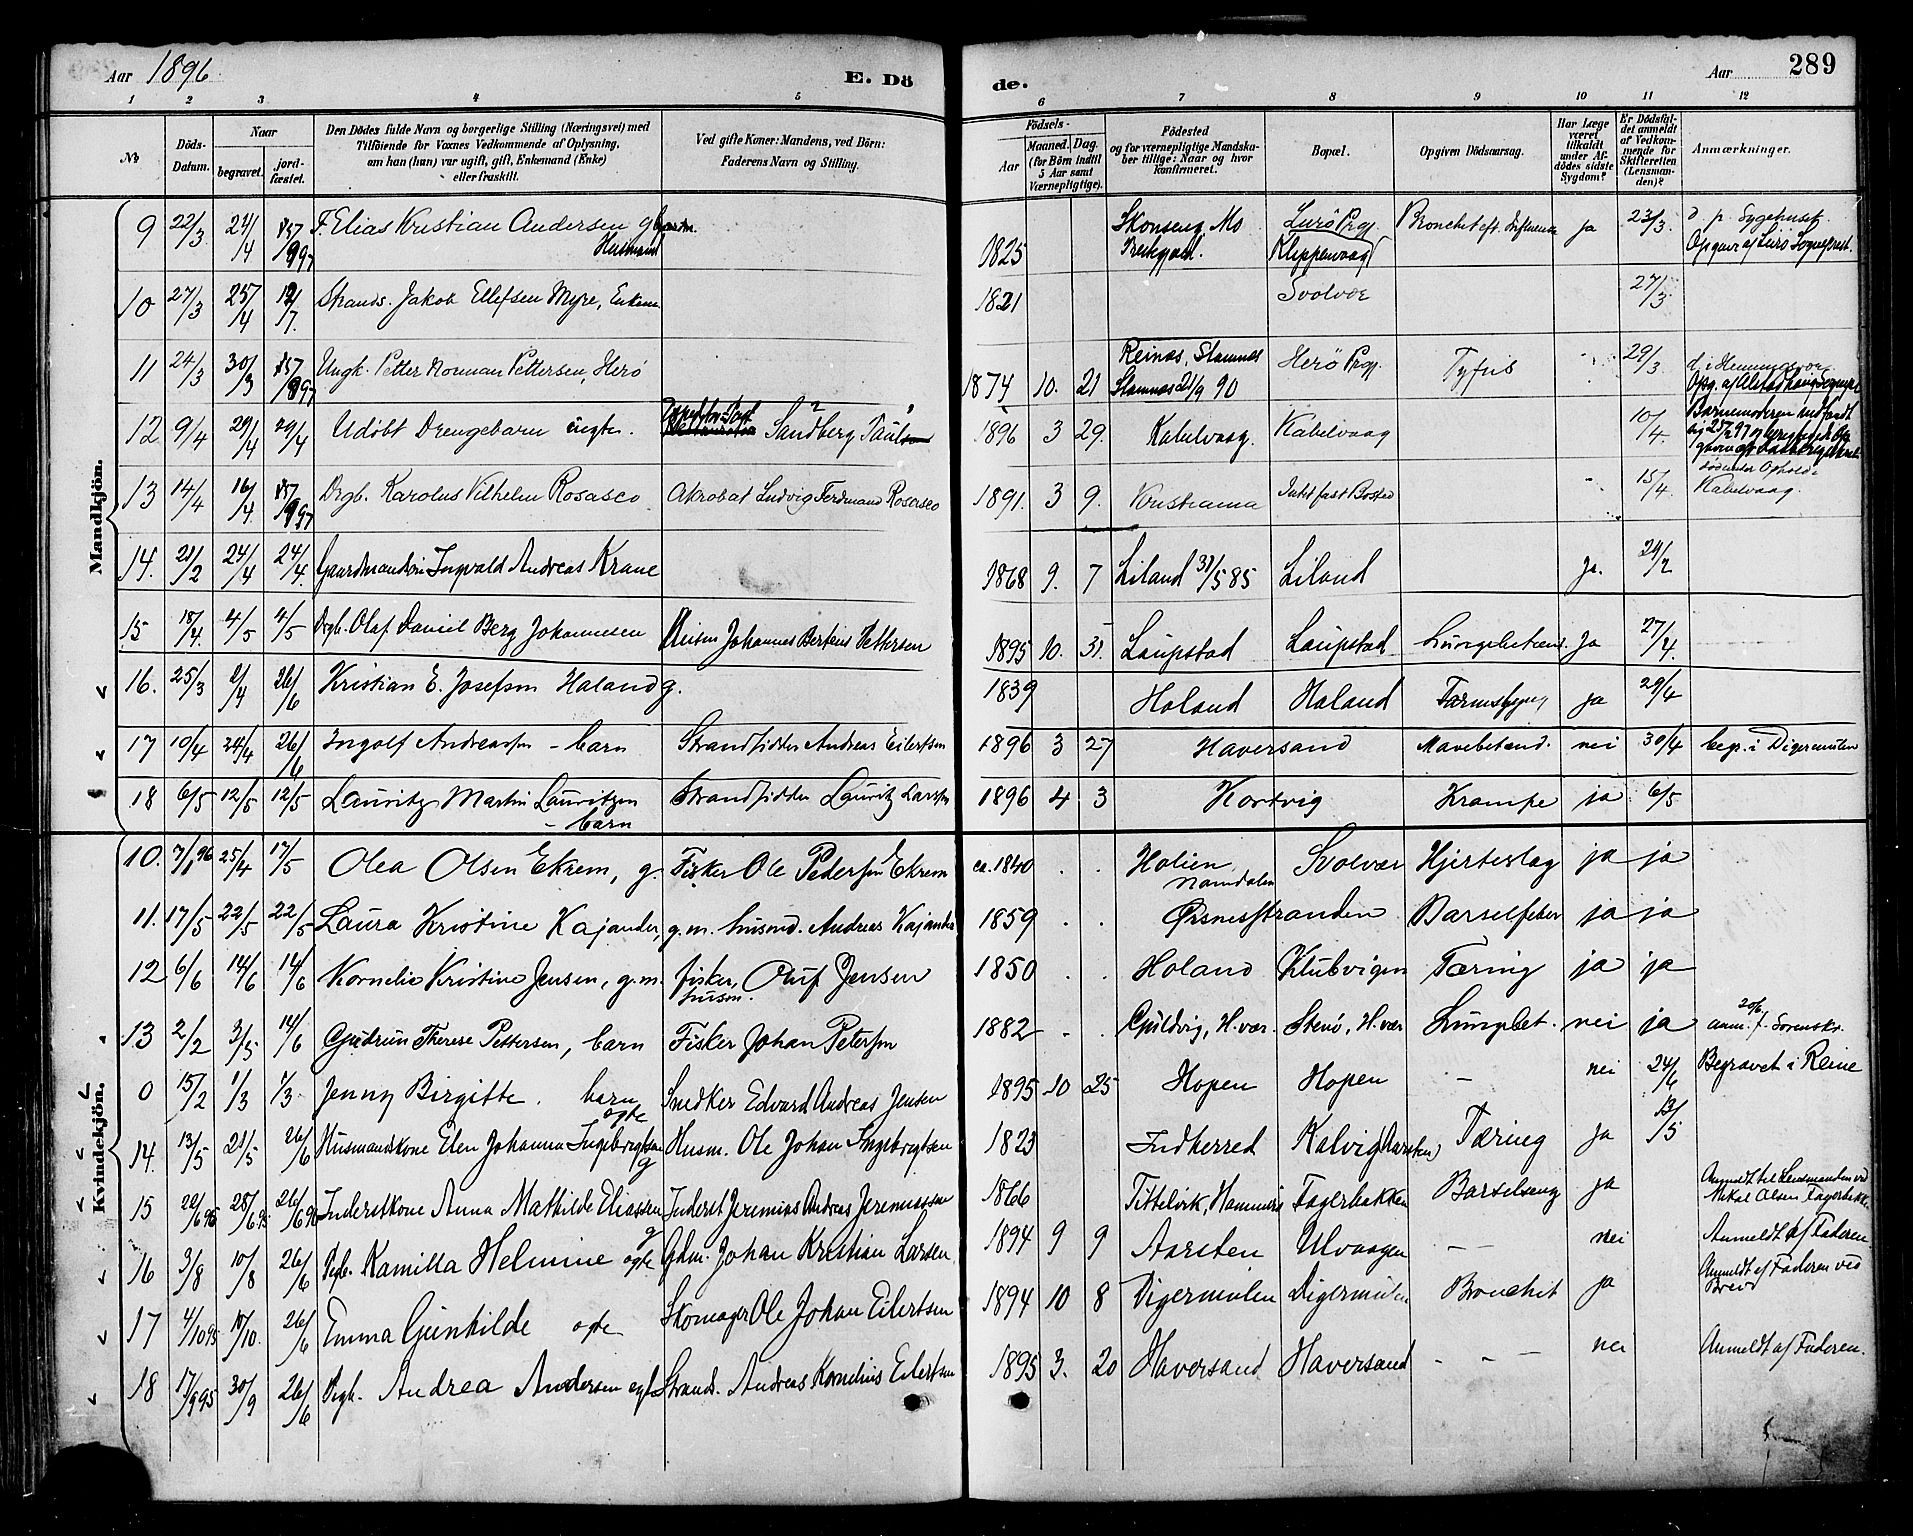 Aar 1896
E. Dö
de.
Aar 289
1 2 3 4 5 6 7 8 9 10 11 12
№
Döds-Datum.
Naar
begravet.
jordfæstet.
Den Dödes fulde Navn og borgerlige Stilling (Næringsvei) med
Tilföiende for Voxnes Vedkommende af Oplysning,
om han (hun) var ugift, gift, Enkemand (Enke)
eller fraskilt.
Ved gifte Koner: Mandens, ved Börn:
Faderens Navn og Stilling.
Födsels-
Aar
Maaned. Dag.
(for Börn indtil
5 Aar samt
Værnepligtige).
Födested
og for værnepligtige Mandskaber tillige: Naar og hvor
konfirmeret.
Bopæl.
Opgiven Dödsaarsag.
Har Læge
været
tilkaldt
under Afdödes sidste
Sygdom?
Er Dödsfaldet anmeldt
af Vedkommende for
Skifteretten
(Lensmanden)?
Anmærkninger.
Mandkjön.
9 22/3 24/4 F. Elias Kristian Andersen g Husmand 1825 Skonseng, Mo Lurö Prgj. Klippenvaag Bronchit eft. Influenza ja 23/3 d. p. Sygehuset.
Opgave af Lurö Sogneprest.
10 27/3 25/4 12/7. Strands. Jakob Ellefsen Myre, Enkem 1821 Svolvær 27/3
11 24/3 30/3 Ungk. Petter Norman Pettersen, Herö 1874 10. 21 Reines, Stamnes Stamnes 21/9 90 Herö Prgj. Tyfus 29/3 d. i Henningsvær
12 9/4 29/4 29/4 Udöbt Drengebarn uegte. Sandberg 1896 3 29. Kabelvaag. Kabelvaag 10/4. Barnemoderen indfandt
13 14/4 16/4. Drgb. Karolus Vilhelm Rosasco Akrobat Ludvig Ferdinand Rosasco 1891. 3 9. Kristiania Intet fast Bosted 15/4. död under Ophold i
Kabelvaag.
14. 21/2 24/4 24/4. Gaardmandsön Ingvald Andreas Krane 1868 9. 7 Liland 31/5 85 Liland Ja. 29/2
15 18/4. 4/5 4/5 Drgb. Olaf Daniel Berg Johannesen Husm Johannes Berteus Pettersen 1895 10. 31. Laupstad Laupstad Lungebetænd. Ja 27/4.
16. 25/3 2/4 26/6 Kristian E. Josefsen Holand g. 1839 Holand Holand Tarmslyng ja 29/4
17 10/4 24/4 26/6 Ingolf Andreassen - barn Strandsidder Andreas Eilertsen 1896 3 27 Haversand Mavebetænd. nei 30/4 begr. i Digermulen
18 6/5 12/5 12/5 Lauritz Martin Lauritzen - barn Strandsidder Lauritz Larsen 1896 4 3 Kortvig Krampe ja 6/5
Kvindekjön.
10. 7/1 96 25/4 17/5 Olea Olsen Ekrem, g. Fisker Ole Pedersen Ekrem ca. 1840 . . Holien Namdalen Svolvær Hjerteslag ja ja
11. 17/5 22/5 22/5 Laura Kristine Kajander, g. m. husmd. Andreas Kajander 1859 . . Örsnesstranden Barselfeber ja ja
12 6/6 14/6 14/6 Kornelie Kristine Jensen, g. m. fisker, husm. Oluf Jensen 1850 . . Holand Klubvigen Tæring ja ja
13 2/2 3/5 14/6 Gudrun Therese Pettersen, barn Fisker Johan Peterson 1882 . . Guldvig, H. vær. Stenö, H. vær Lungebet. nei ja 20/6 anm. f. Sorenskr.
0 15/2 1/3 1/3. Jenny Birgitte. barn ægte Snedker Edvard Andreas Jensen 1895 10 25 Hopen Hopen — nei 24/6 Begravet i Reine
14. 13/5 21/5 26/6 Husmandskone Elen Johanna Ingebrigtsen g Husm. Ole Johan Ingebrigtsen 1823 Indherred Kalvig (Aarsten) Tæring Ja 13/5
15 22/6 95 28/6 95 26/6 96 Inderstkone Anna Mathilde Eliassen g Inderst Jeremias Andreas Jeremiassen 1866 Tittelvik, Hammerö Fagerbakken Barselseng ja Anmeldt til Lensmanden ved
Mikal Olsen Fagerbakken
16 3/8 10/8 26/6 Pigb. Kamilla Helmine ægte Gdm. Johan Kristian Larsen 1894 9 9 Aarsten Ulvaagen — — nei Anmeldt af Faderen.
17 4/10 95 10/10. 26/6 Emma Gunhilde ægte Skomager Ole Johan Eilertsen 1894 10 8 Digermulen Digermulen Bronchit ja Anmeldt af Faderen ved
Brevd
18 17/9 95 30/9 26/6 Pigb. Andrea Andersen ægt Strands. Andreas Kornelius Eilertsen 1895 3. 20 Haversand Haversand - - - nei Anmeldt af Faderen.